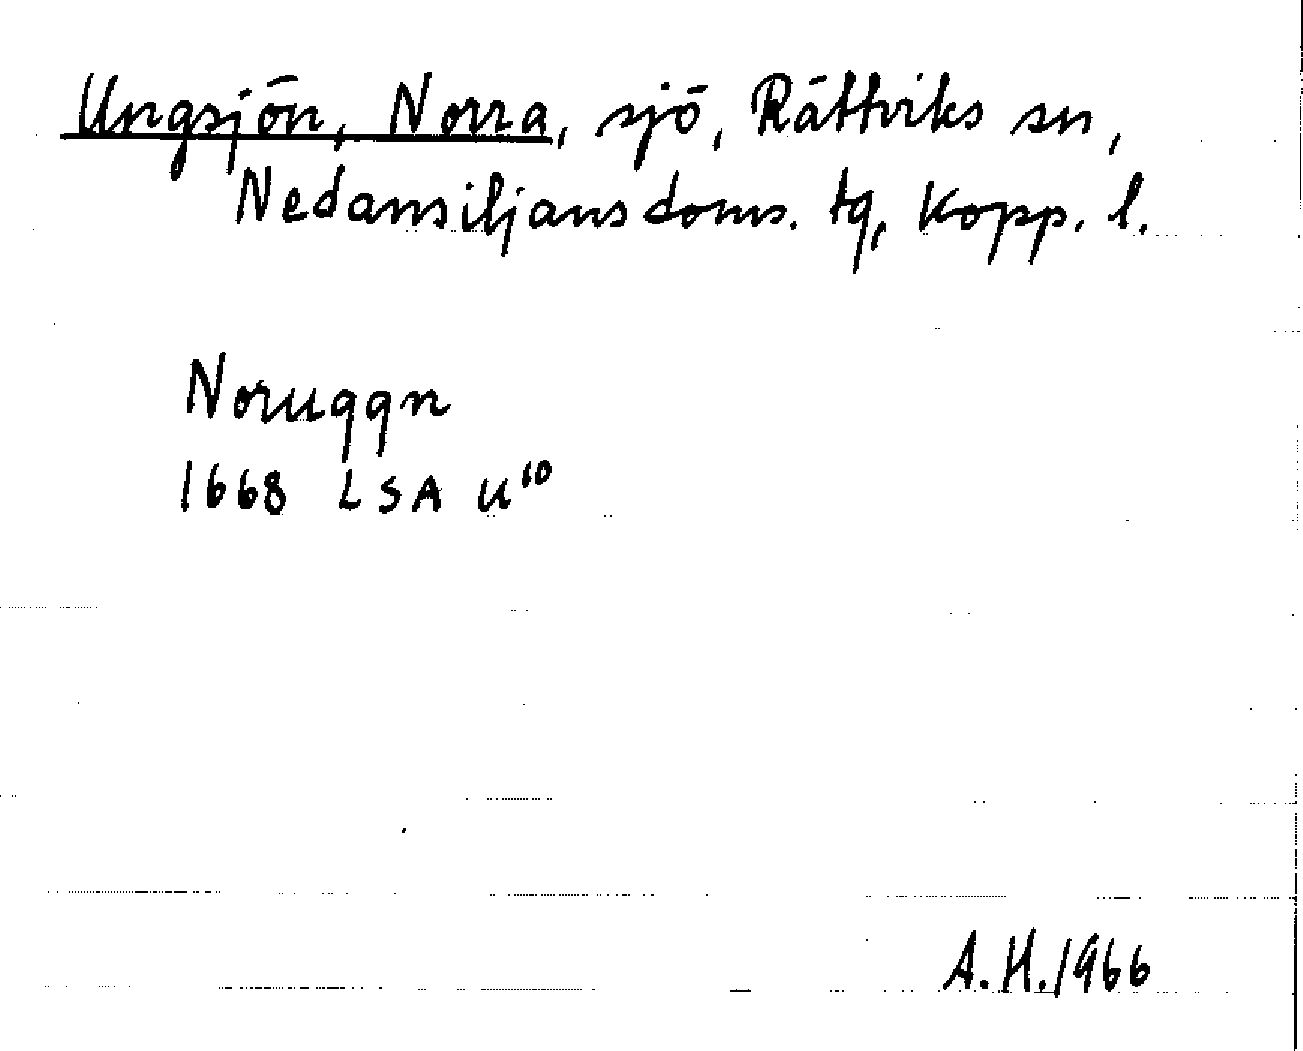 Ungsjön, Norra, sjö, Rättviks sn,
Nedansiljans doms. tg, Kopp. l.
Noruggn
1668 LSA U¹⁰
A.H. 1966